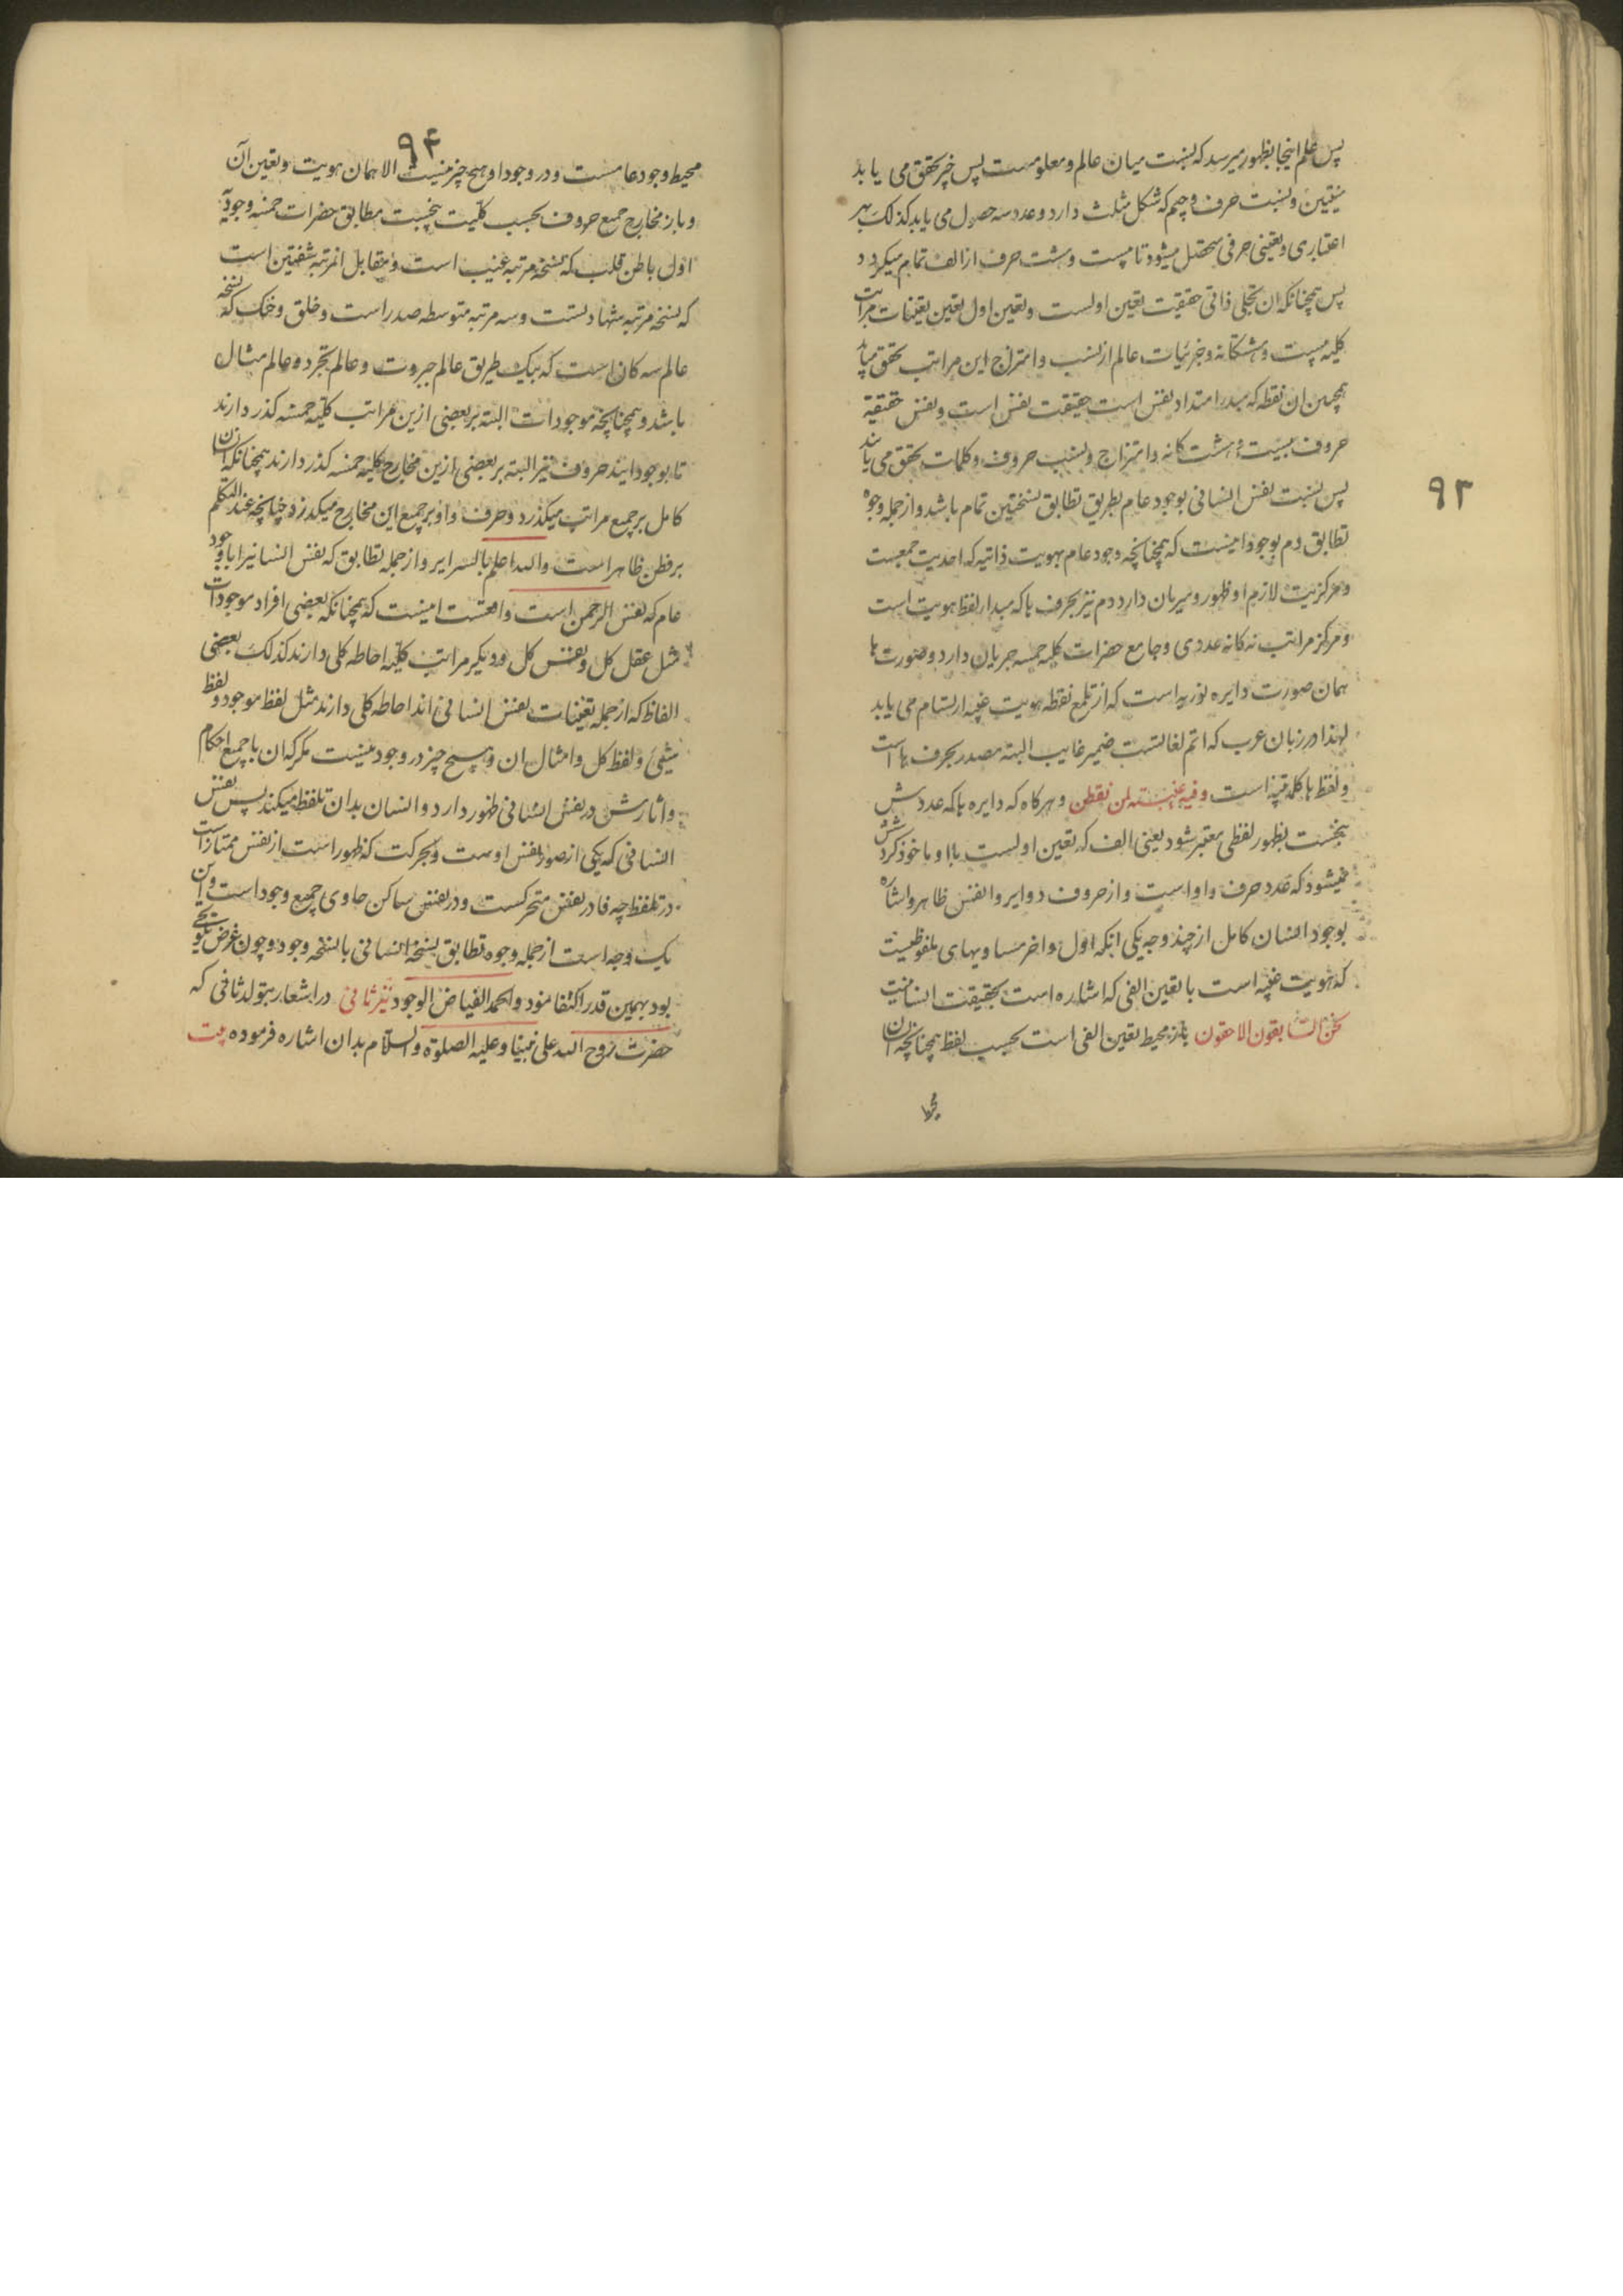 پس علم اینجا بظهور میرسد که نسبت میان عالم و معلومست پس خبر تحقق می یابد
تعین و نسبت حرف و جیم که شکل مثلث دارد و عدد سه حصول می یابد کذلک بهر
اعتباری و تعینی حرفی متحصل میشود تا بیست و هشت حرف از الف تمام میکردد
پس همچنانکه ان تجلی ذاتی حقیقت تعین اولست و تعین اول تعین تعینات مراتب
کلیه بیست و هشتکانه و جزئیات عالم از نسب و امتزاج این مراتب تحقق میابد
همچنین ان نقطه که مبدا امتداد نفس است حقیقت نفس است و نفس حقیقة
حروف بیست و هشت کانه و امتزاج و نسب حروف و کلمات تحقق می یابند
۹۳
پس نسبت نفس انسانی بوجود عام بطریق تطابق نسختین تمام باشد و از جمله وجوه
تطابق دم بوجود اینست که همچنانچه وجود عام بهویت ذاتیه که احدیت جمعیت
و مرکزیت لازم او ظهور و سریان دارد دم نیز بحرف ها که مبدا لفظ هویت است
و مرکز مراتب نه کانه عددی و جامع حضرات کلیه خمسه جریان دارد و صورت ها
همان صورت دایره نوریه است که از تلمع نقطه هویت غیبه ارتسام می یابد
لهذا در زبان عرب که اتم لغاتست ضمیر غایب البته مصدر بحرف ها است
و لفظ ها کلمه تنبیه است و فیه غنیة لمن تفطن و هرکاه که دایره ها که عددش
پنجست بظهور لفظی معتبر شود یعنی الف که تعین اولست باا و ماخوذ کردد شش
میشود که عدد حرف واواست و از حروف دوایر و انفس ظاهر و اشاره
بوجود انسان کامل از چند وجه یکی انکه اول و اخر مساویهای ملفوظیست
که هویت غیبه است با تعین الفی که اشاره است بحقیقت انسانیت
نحن السابقون الاحقون باز محیط تعین الفی است بحسب لفظ همچنانچه ان
محیط
۹۴
محیط وجود عامست و در وجود او هیچ چیز نیست الا همان هویت و تعین آن
و باز مخارج جمیع حروف بحسب کلیت پنجست مطابق حضرات خمسه وجودیه
اول باطن قلب که نسخه مرتبه غیب است و مقابل انمرتبه شفتین است
که نسخه مرتبه شهادتست و سه مرتبه متوسطه صدر است و حلق و حنک که نسخه
عالم سه کان است که بیک طریق عالم جبروت و عالم تجرد و عالم مثال
باشد و همچنانچه موجودات البته بر بعضی ازین مراتب کلیه خمسه کذر دارند
تا بوجود ایند حروف نیز البته بر بعضی ازین مخارج کلیه خمسه کذر دارند همچنانکه انسان
کامل بر جمیع مراتب میکذرد و حرف واو بر جمیع این مخارج میکذرد چنانچه عند التکلم
بر فطن ظاهر است والله اعلم بالسرایر و از جمله تطابق که نفس انسانیرا با وجود
عام که نفس الرحمن است واقعست اینست که همچنانکه بعضی افراد موجودات
مثل عقل کل و نفس کل و دیکر مراتب کلیه احاطه کلی دارند کذلک بعضی
الفاظ که از جمله تعینات نفس انسانی اند احاطه کلی دارند مثل لفظ موجود و لفظ
شیئ و لفظ کل و امثال ان و هیچ چیز در وجود نیست مکر که ان با جمیع احکام
و اثارش در نفس انسانی ظهور دارد و انسان بدان تلفظ میکند پس نفس
انسانی که یکی از صور نفس اوست و بحرکت که ظهور است از نفس ممتاز است
در تلفظ چه فا در نفس متحرکست و در نفس ساکن حاوی جمیع وجود است و این
یک وجه است از جمله وجوه تطابق نسخه انسانی با نسخه وجود و چون غرض
بود بهمین قدر اکتفا نمود والحمد لفیاض الوجود نثر ثانی در اشعار بتولد ثانی که
حضرت روح الله علی نبینا و علیه الصلوة والسلام بدان اشاره فرموده بیت